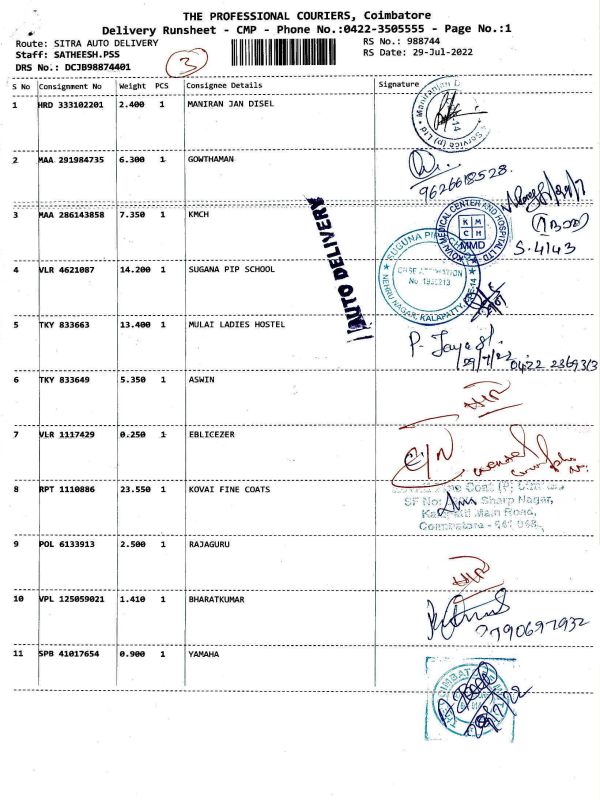 THE PROFESSIONAL COURIERS, Coimbatore
Delivery Runsheet - CMP - Phone No.:0422-3505555 - Page No.:1
Route: SITRA AUTO DELIVERY
RS No.: 988744
Staff: SATHEESH.PSS
RS Date: 29-Jul-2022
DRS No.: DCJB98874401
3
S No Consignment No Weight PCS Consignee Details Signature
1 HRD 333102201 2.400 1 MANIRAN JAN DISEL
2 MAA 291984735 6.300 1 GOWTHAMAN
9626618528
3 MAA 286143858 7.350 1 KMCH
KOVAI MEDICAL CENTER AND HOSPITAL LTD
KMCH
MMD
S.4143
AUTO DELIVERY
4 VLR 4621087 14.200 1 SUGANA PIP SCHOOL
SUGUNA PIP
No. 1930213
NEHRU NAGAR, KALAPATTY, CBE-14
5 TKY 833663 13.400 1 MULAI LADIES HOSTEL
P. Jaya
29/7/22
0422 2369313
6 TKY 833649 5.350 1 ASWIN
7 VLR 1117429 0.250 1 EBLICEZER
8 RPT 1110886 23.550 1 KOVAI FINE COATS
Fine Coat (P) Limited
SF No: Sharp Nagar,
Main Road,
Coimbatore - 641 048.
9 POL 6133913 2.500 1 RAJAGURU
10 VPL 125059021 1.410 1 BHARATKUMAR
7790697932
11 SPB 41017654 0.900 1 YAMAHA